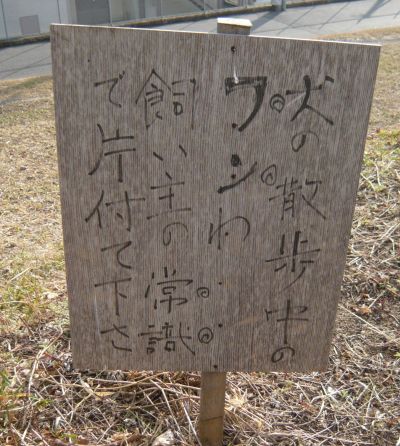 犬の散歩中の
フンわ
飼い主の常識
で片付て下さ